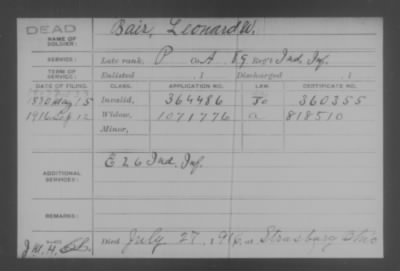 DEAD
NAME OF SOLDIER:
Bair, Leonard W.
SERVICE:
Late rank, P Co. A, 89 Reg't Ind. Inf.
TERM OF SERVICE:
Enlisted , 1 Discharged , 1
DATE OF FILING. CLASS. APPLICATION NO. LAW. CERTIFICATE NO.
1880 May 15 Invalid, 364486 360355
1916 Sep 12 Widow, 1071776 a 818510
Minor,
ADDITIONAL SERVICES:
E 26 Ind. Inf.
REMARKS:
Died July 27, 1916, at Strasburg Ohio